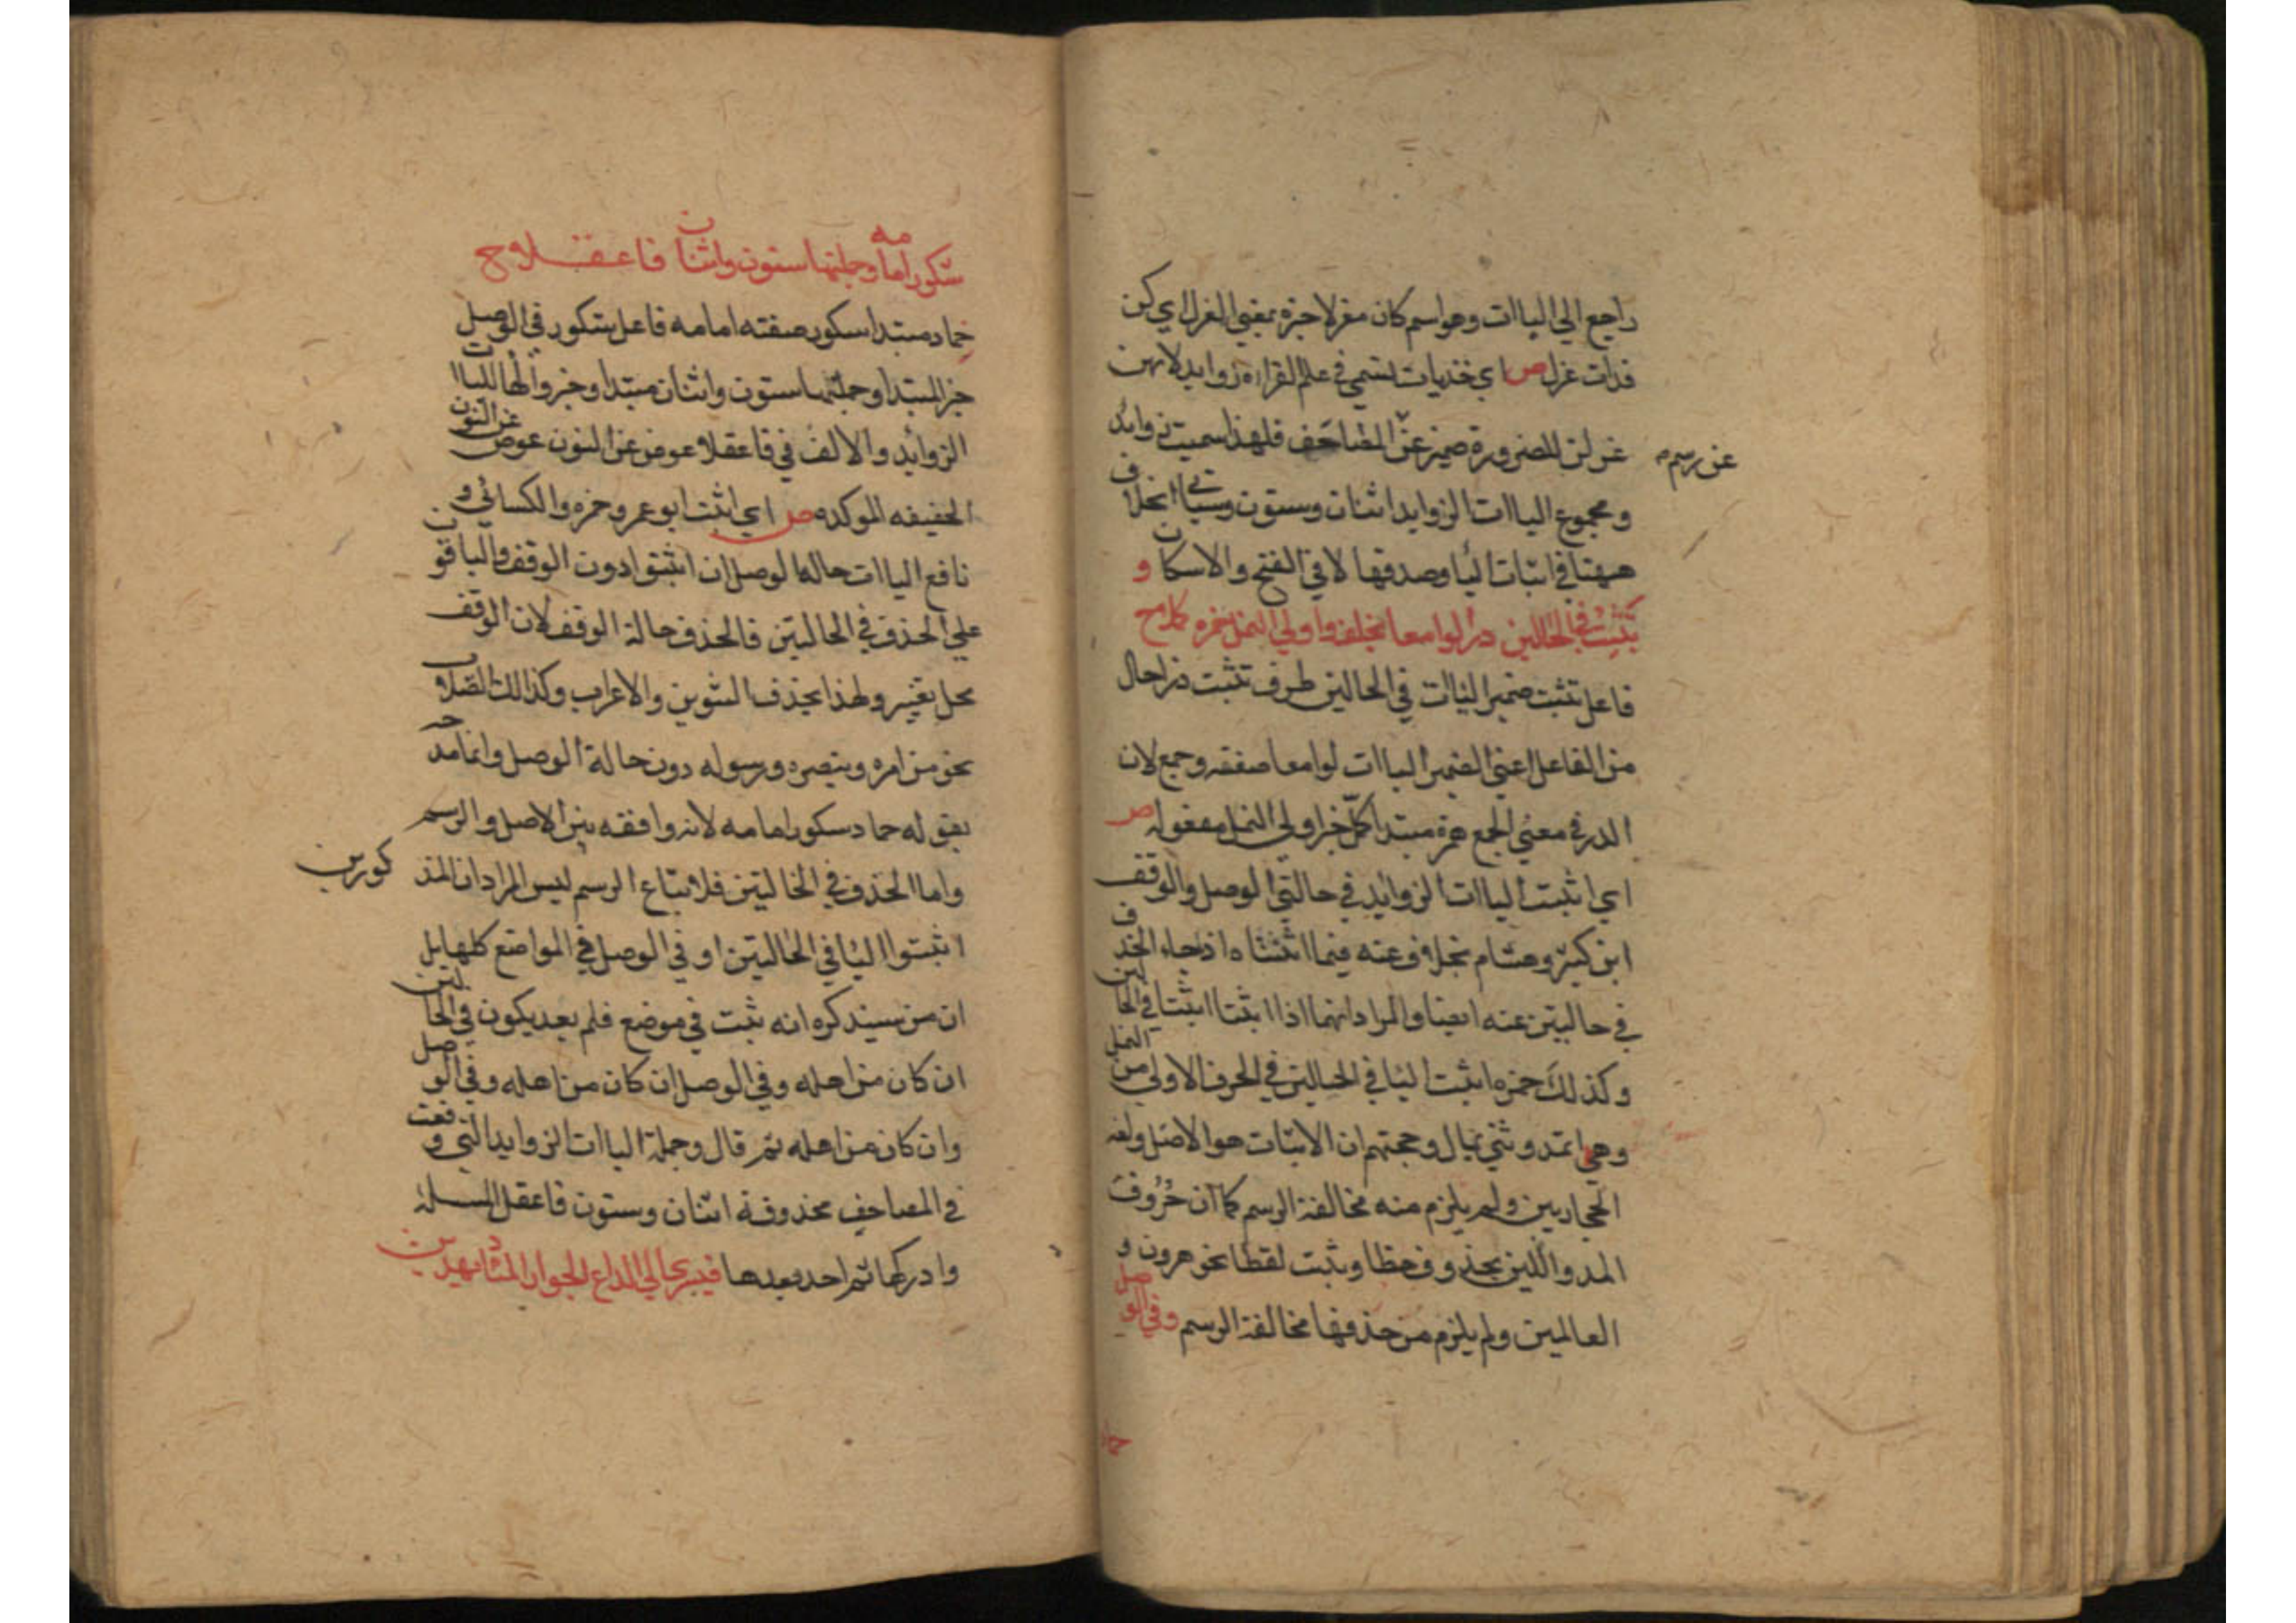 راجع الي الياات وهو اسم كان معزلا خبره بمعني العزل اي كن
ذات عزل ص اي خذ ياات تسمي في علم القراءة زوايد لانهن
عن رسم
عزلن للضرورة صيرن عن المصاحف فلهذا سميت زوايد
و مجموع الياات الزوايد اثنان وستون وسياتي الخلاف
ههنا في اثبات اليا وحذفها لا في الفتح والاسكان و
تثبت في الحالين درا لوامعا بخلف واولي النمل حمزه كملا ح
فاعل تثبت ضمير الياات في الحالين ظرف تثبت درا حال
من الفاعل اعني الضمير الياات لوامعا صفته وجمع لان
الدر في معني الجمع حمزة مبتدا كمّل خبر اولي النمل مفعوله ص
اي اثبت الياات الزوايد في حالتي الوصل والوقف
ابن كثير وهشام بخلاف عنه فيما اثبتاه اذ جاء الحذف
في حاليتن عنه ايضا والمراد انهما اذا اثبتا اثبتا في الحالين
وكذلك حمزه اثبت اليا في الحالين في الحرف الاولي من النمل
وهي اتمدونني بمال وحجتهم ان الاثبات هو الاصل ولغة
الحجازيين ولم يلزم منه مخالفة الرسم كما ان حُرُوف
المد واللين يحذف خطا ويثبت لفظا نحو هرون و
العالمين ولم يلزم من حذفها مخالفة الرسم وفي الوصل
حماد
شكور امامه وجملتها ستون واثنان فاعقلا وح
حماد مبتدا شكور صفته امامه فاعل شكور في الوصل
خبر المبتدا وجملتها ستون واثنان مبتدا وخبر والها للياات
الزوايد والالف في فاعقلا عوض عن النون عوض عن النون
الخفيفه الموكده ص اي اثبت ابو عمرو وحمزه والكسائي و
نافع الياات حالة الوصل ان اثبتوا دون الوقف والباقون
علي الحذف في الحاليتن فالحذف حالة الوقف لان الوقف
محل تغيير ولهذا يحذف التنوين والاعراب وكذالك الصلات
نحو من امره وينصره ورسوله دون حالة الوصل وانما مدحه
بقوله حماد شكور امامه لانه وافقه بين الاصل والرسم
واما الحذف في الحاليتن فلاتباع الرسم ليس المراد ان المذكورين
اثبتوا اليا في الحاليتن او في الوصل في المواضع كلها بل
ان من سيذكره انه يثبت في موضع فلم يعد يكون في الحالتين
ان كان من اهله وفي الوصل ان كان من اهله وفي الوصل
وان كان من اهله ثم قال وجملة الياات الزوايد التي وقعت
في المصاحف محذوفة اثنان وستون فاعقل المسلة
وادركها ثم احد بعدها فيسري الي الداع الجوار المناد يهدين